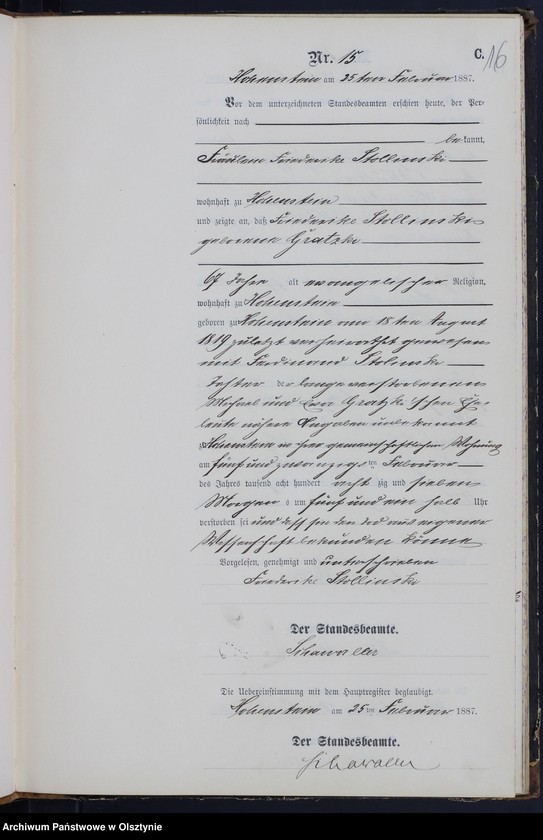 C.
16
Nr. 15
Hohenstein am 25ten Februar 1887.
Vor dem unterzeichneten Standesbeamten erschien heute, der Per-
sönlichkeit nach
bekannt,
Fräulein Friederike Stollinski
wohnhaft zu Hohenstein
und zeigte an, daß Friederike Stollinski
geborene Gratzki
67 Jahre alt evangelischer Religion,
wohnhaft zu Hohenstein
geboren zu Hohenstein am 18ten August
1819 zuletzt verheirathet gewesen
mit Ferdinand Stolinski
Tochter der verstorbenen
Michael und Gratzki'schen Ehe-
leute nähere Angaben unbekannt
Hohenstein in ihrer gemeinschaftlichen Wohnung
am fünf und zwanzigsten Februar
des Jahres tausend acht hundert acht zig und sieben
Morgens um fünf und ein halb Uhr
verstorben sei und daß sie den Tod aus eigener
Wissenschaft bekunden könne
Vorgelesen, genehmigt und unterschrieben
Friederike Stollinski
Der Standesbeamte.
Schawaller
Die Uebereinstimmung mit dem Hauptregister beglaubigt.
Hohenstein am 25ten Februar 1887.
Der Standesbeamte.
Schawaller
Archiwum Państwowe w Olsztynie